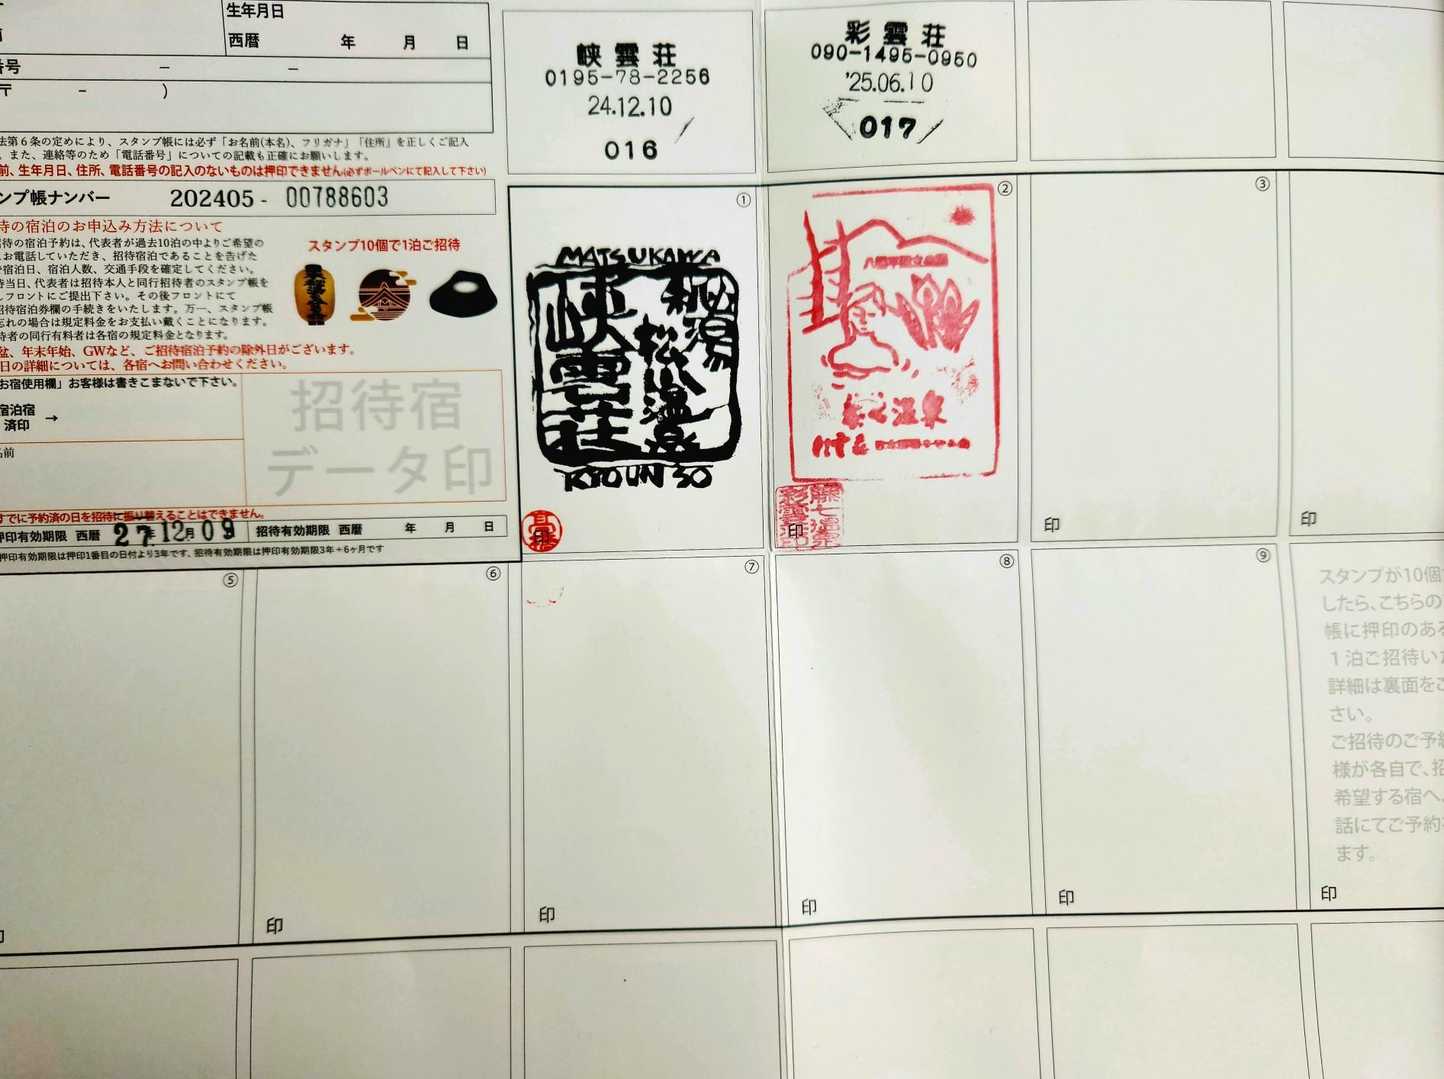 生年月日
西暦 年 月 日
番号 － －
〒 － )
法第６条の定めにより、スタンプ帳には必ず「お名前(本名)、フリガナ」「住所」を正しくご記入
。また、連絡等のため「電話番号」についての記載も正確にお願いします。
前、生年月日、住所、電話番号の記入のないものは押印できません(必ずボールペンにて記入して下さい)
ンプ帳ナンバー 202405 - 00788603
待の宿泊のお申込み方法について
招待の宿泊予約は、代表者が過去10泊の中よりご希望の
にお電話していただき、招待宿泊であることを告げた
で宿泊日、宿泊人数、交通手段を確定してください。
待当日、代表者は招待本人と同行招待者のスタンプ帳を
しフロントにご提出下さい。その後フロントにて
招待宿泊券欄の手続きをいたします。万一、スタンプ帳
忘れの場合は規定料金をお支払い戴くことになります。
待者の同行有料者は各宿の規定料金となります。
スタンプ10個で1泊ご招待
盆、年末年始、GWなど、ご招待宿泊予約の除外日がございます。
日の詳細については、各宿へお問い合わせください。
お宿使用欄」お客様は書きこまないで下さい。
宿泊宿 →
済印
名前
招待宿
データ印
すでに予約済の日を招待に振り替えることはできません。
押印有効期限 西暦 27年12月09 招待有効期限 西暦 年 月 日
押印有効期限は押印1番目の日付より3年です、招待有効期限は押印有効期限3年＋6ヶ月です
峡雲荘
0195-78-2256
24.12.10
016
彩雲荘
090-1495-0950
'25.06.10
017
①
MATSUKAWA
秘湯
松川温泉
峡雲荘
KYOUNSO
②
藤七温泉
彩雲荘
印
③
印
印
⑤
印
⑥
印
⑦
印
⑧
印
⑨
印
スタンプが10個
したら、こちらの
帳に押印のある
１泊ご招待い
詳細は裏面をご
さい。
ご招待のご予約
様が各自で、招
希望する宿へ
話にてご予約
ます。
印